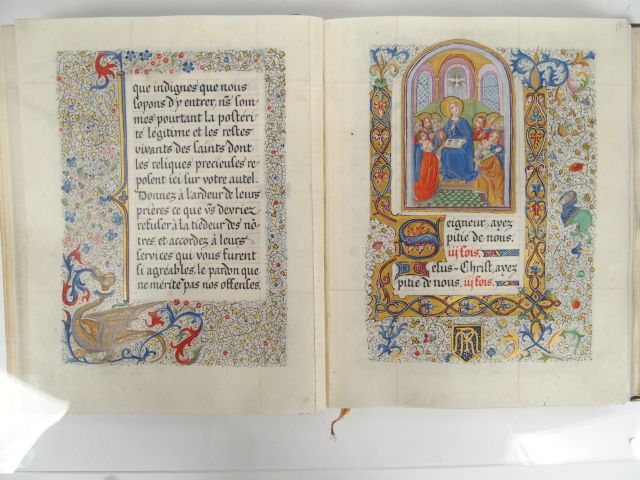 que indignes que nous
soyons d'y entrer, ns̃ som-
mes pourtant la posteri-
té légitime et les restes
vivants des saints dont
les reliques precieuses re-
posent ici sur votre autel.
Donnez à l'ardeur de leurs
prières ce que vs̃ devriez
refuser à la tiedeur des nô-
tres et accordez à leurs
services qui vous furent
si agréables, le pardon que
ne mérite pas nos offenses.
Seigneur, ayez
pitie de nous.
iij fois.
Jesus-Christ, ayez
pitie de nous, iij fois.